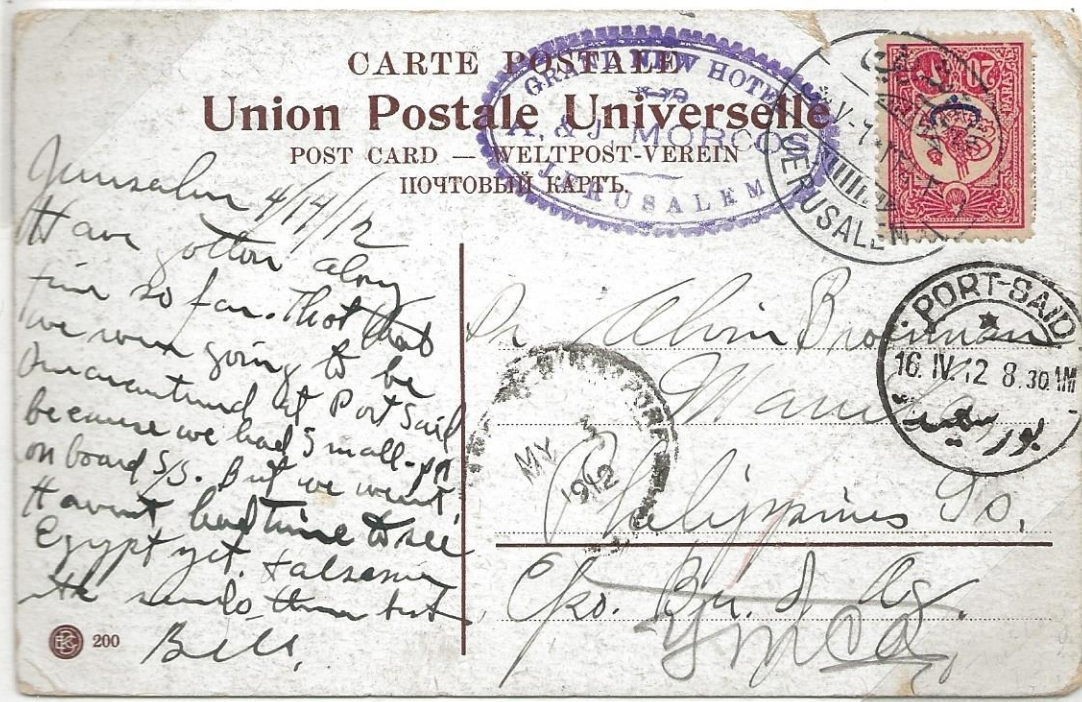 CARTE POSTALE
Union Postale Universelle
POST CARD — WELTPOST-VEREIN
ПОЧТОВЫЙ КАРТЪ.
GRAND NEW HOTEL
A. & J. MORCOS
JERUSALEM
JERUSALEM
20
PARAS
PORT-SAID
16. IV. 12 8.30 AM
بور سعيد
MY 3
1912
Jerusalem 4/14/12
Have gotten along
fine so far. Thot that
we were going to be
Quarantined at Port Said
because we had small-pox
on board S/S. But we weren't.
Haven't had time to see
Egypt yet.
sends them best
Bill.
Dr. Alvin
Manila
Philippines Is.
c/o. Bu. of Ag.
YMCA
200